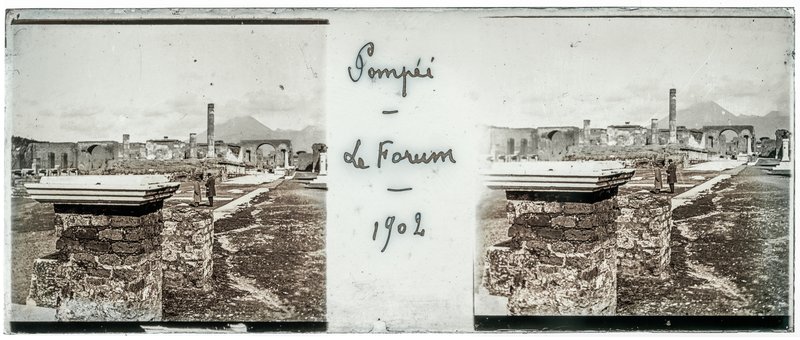 Pompéi
Le Forum
1902